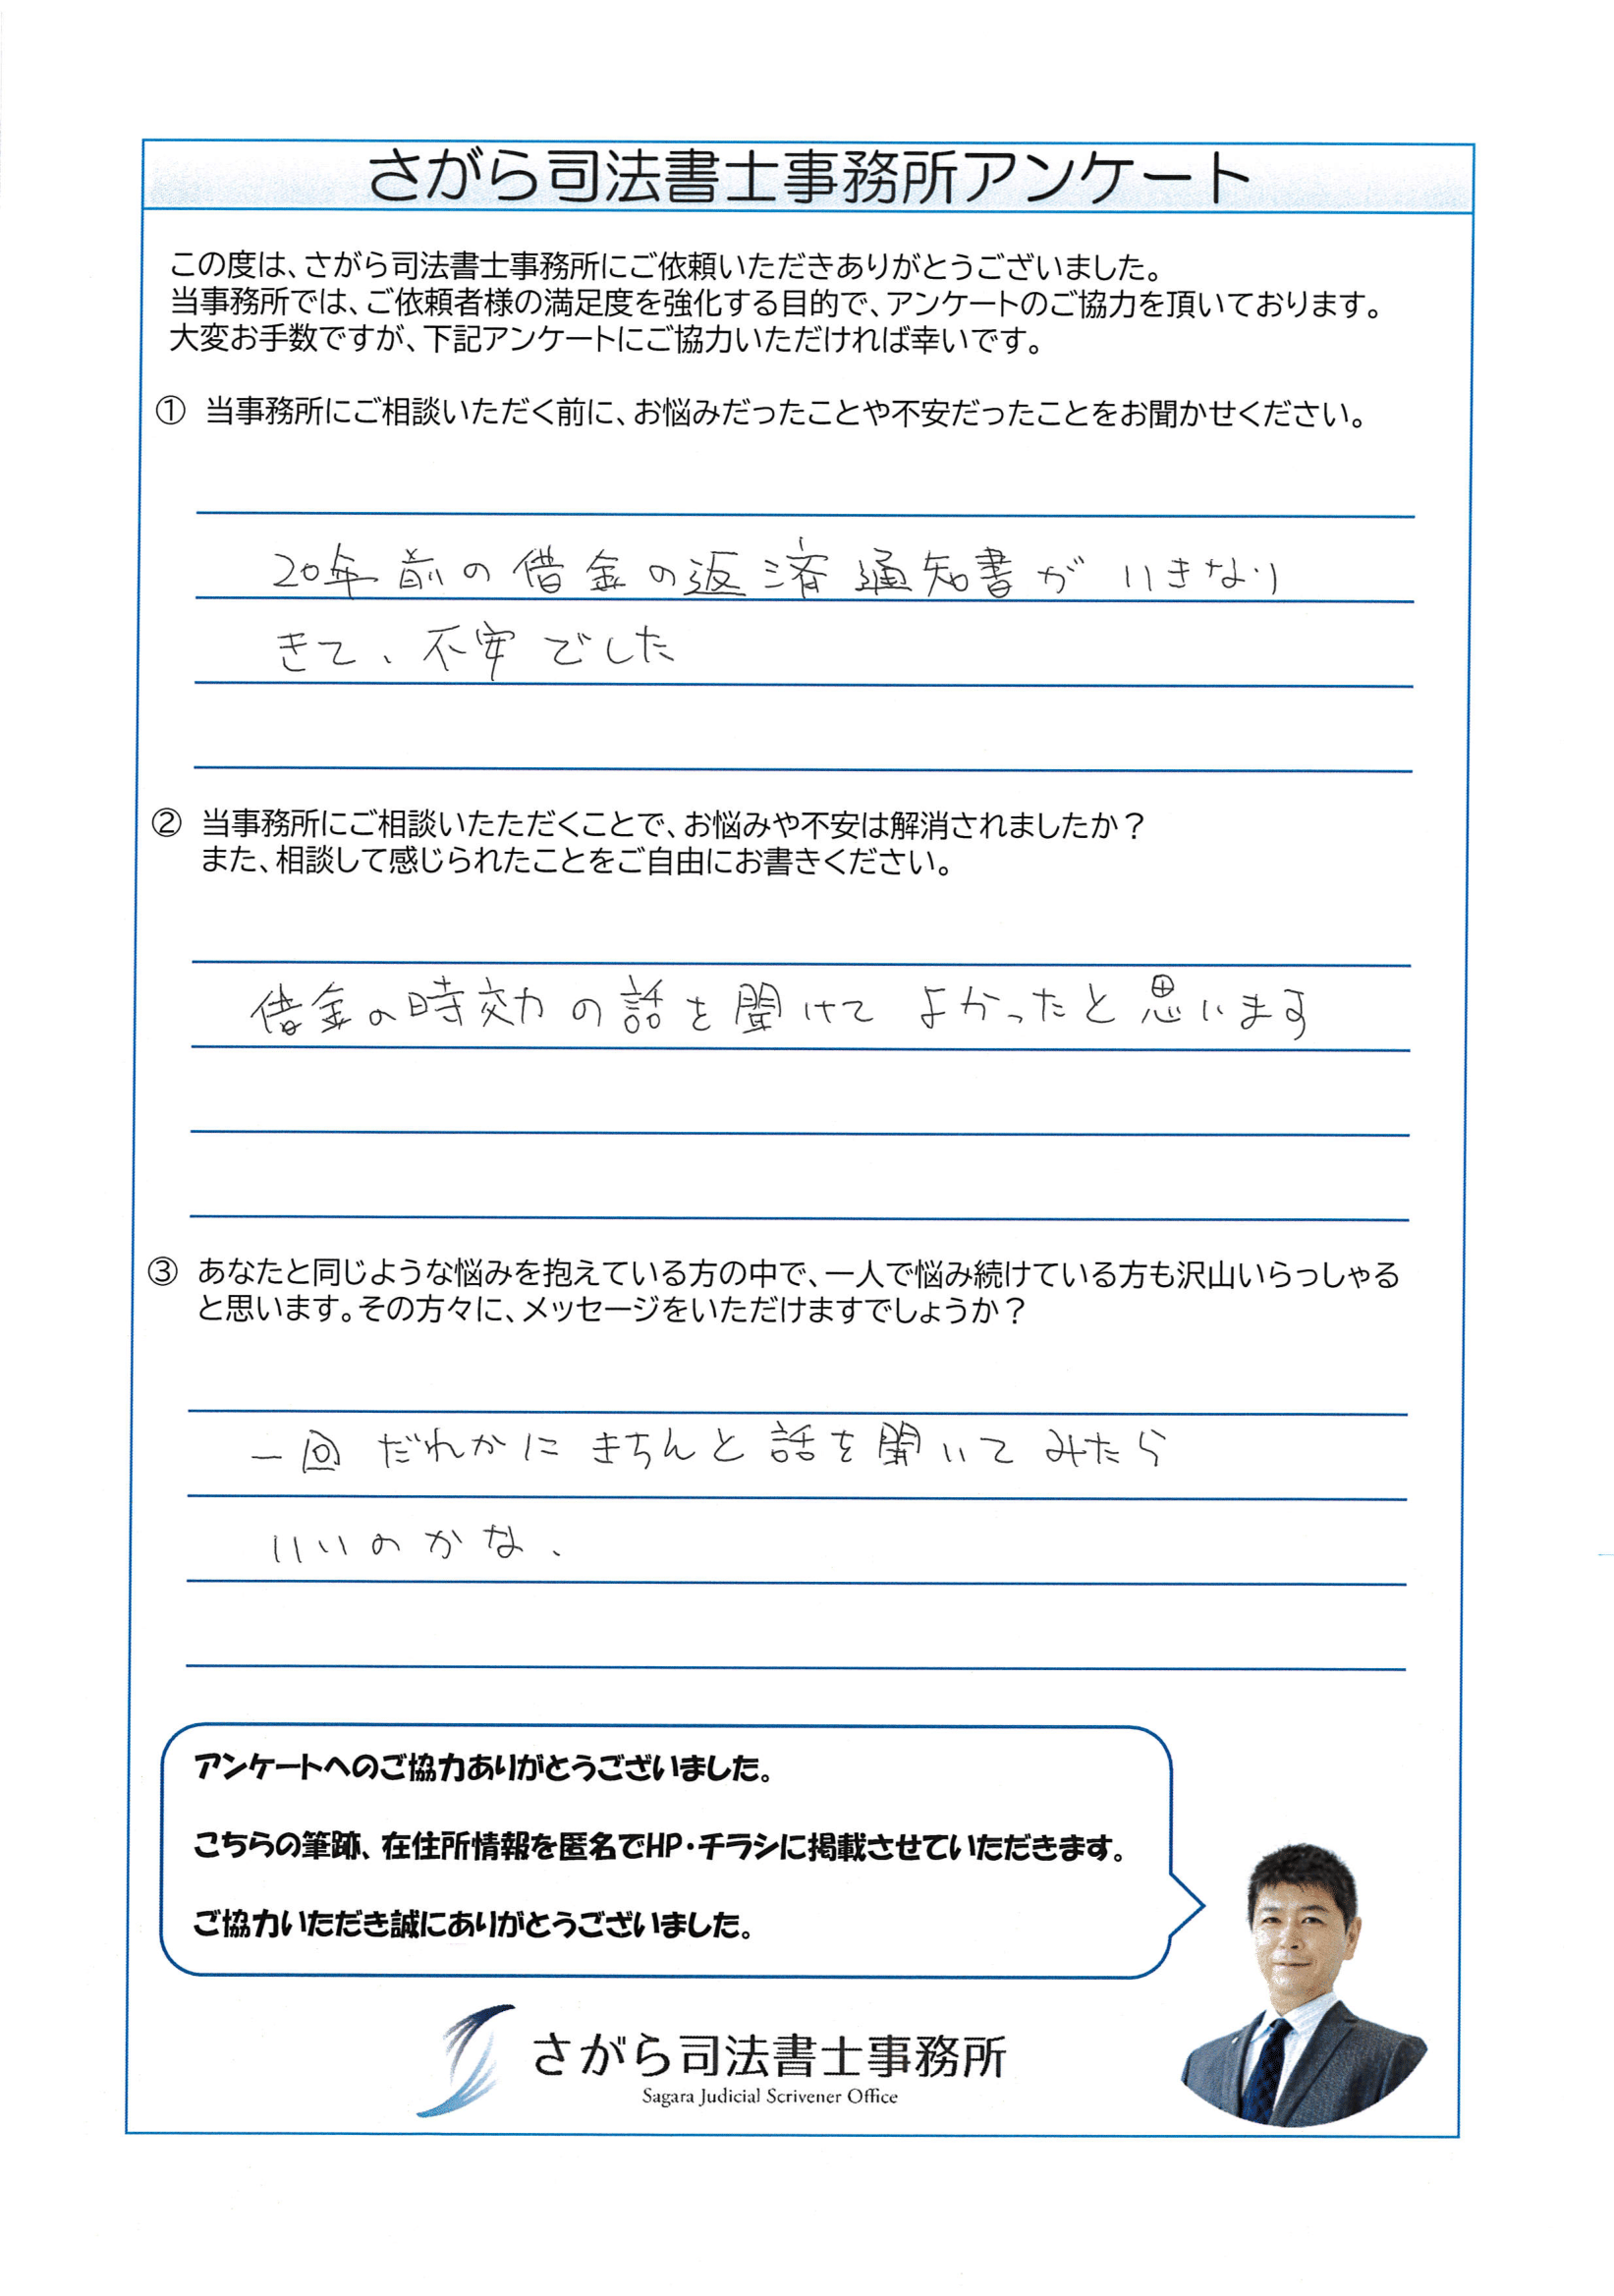 さがら司法書士事務所アンケート
この度は、さがら司法書士事務所にご依頼いただきありがとうございました。
当事務所では、ご依頼者様の満足度を強化する目的で、アンケートのご協力を頂いております。
大変お手数ですが、下記アンケートにご協力いただければ幸いです。
① 当事務所にご相談いただく前に、お悩みだったことや不安だったことをお聞かせください。
20年前の借金の返済通知書がいきなり
きて、不安でした
② 当事務所にご相談いたただくことで、お悩みや不安は解消されましたか？
また、相談して感じられたことをご自由にお書きください。
借金の時効の話を聞けてよかったと思います
③ あなたと同じような悩みを抱えている方の中で、一人で悩み続けている方も沢山いらっしゃる
と思います。その方々に、メッセージをいただけますでしょうか？
一回だれかにきちんと話を聞いてみたら
いいのかな、
アンケートへのご協力ありがとうございました。
こちらの筆跡、在住所情報を匿名でHP・チラシに掲載させていただきます。
ご協力いただき誠にありがとうございました。
さがら司法書士事務所
Sagara Judicial Scrivener Office